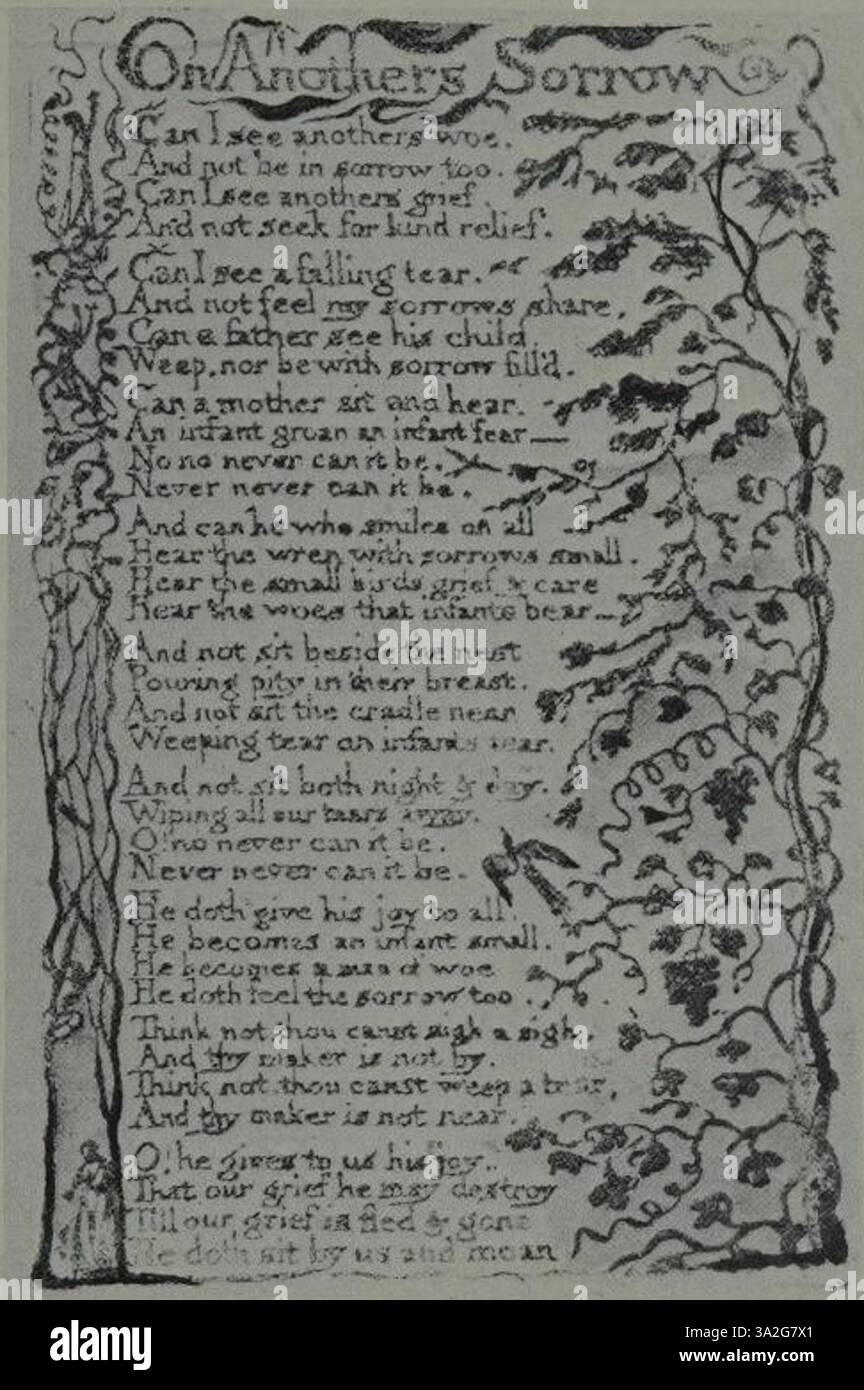 On Anothers Sorrow
Can I see anothers woe.
And not be in sorrow too.
Can I see anothers grief.
And not seek for kind relief.
Can I see a falling tear.
And not feel my sorrows share,
Can a father see his child,
Weep, nor be with sorrow fill'd.
Can a mother sit and hear.
An infant groan an infant fear—
No no never can it be.
Never never can it be.
And can he who smiles on all
Hear the wren with sorrows small.
Hear the small birds grief & care
Hear the woes that infants bear—
And not sit beside the nest
Pouring pity in their breast.
And not sit the cradle near
Weeping tear on infants tear.
And not sit both night & day.
Wiping all our tears away.
O! no never can it be.
Never never can it be.
He doth give his joy to all.
He becomes an infant small.
He becomes a man of woe
He doth feel the sorrow too.
Think not thou canst sigh a sigh.
And thy maker is not by.
Think not thou canst weep a tear,
And thy maker is not near.
O! he gives to us his joy.
That our grief he may destroy
Till our grief is fled & gone
He doth sit by us and moan
alamy
Image ID: 3A2G7X1
www.alamy.com